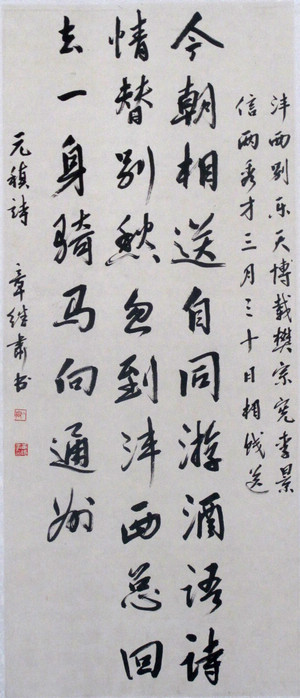 沣西别乐天博载樊宗宪李景
信两秀才三月三十日相饯送
今朝相送自同游酒语诗
情替别愁忽到沣西总回
去一身骑马向通州
元稹詩 章继肃书